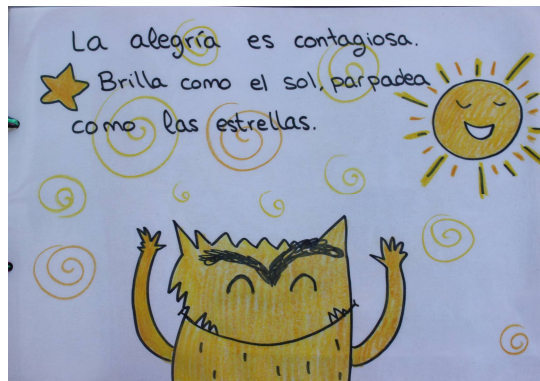 La alegría es contagiosa.
Brilla como el sol, parpadea
como las estrellas.